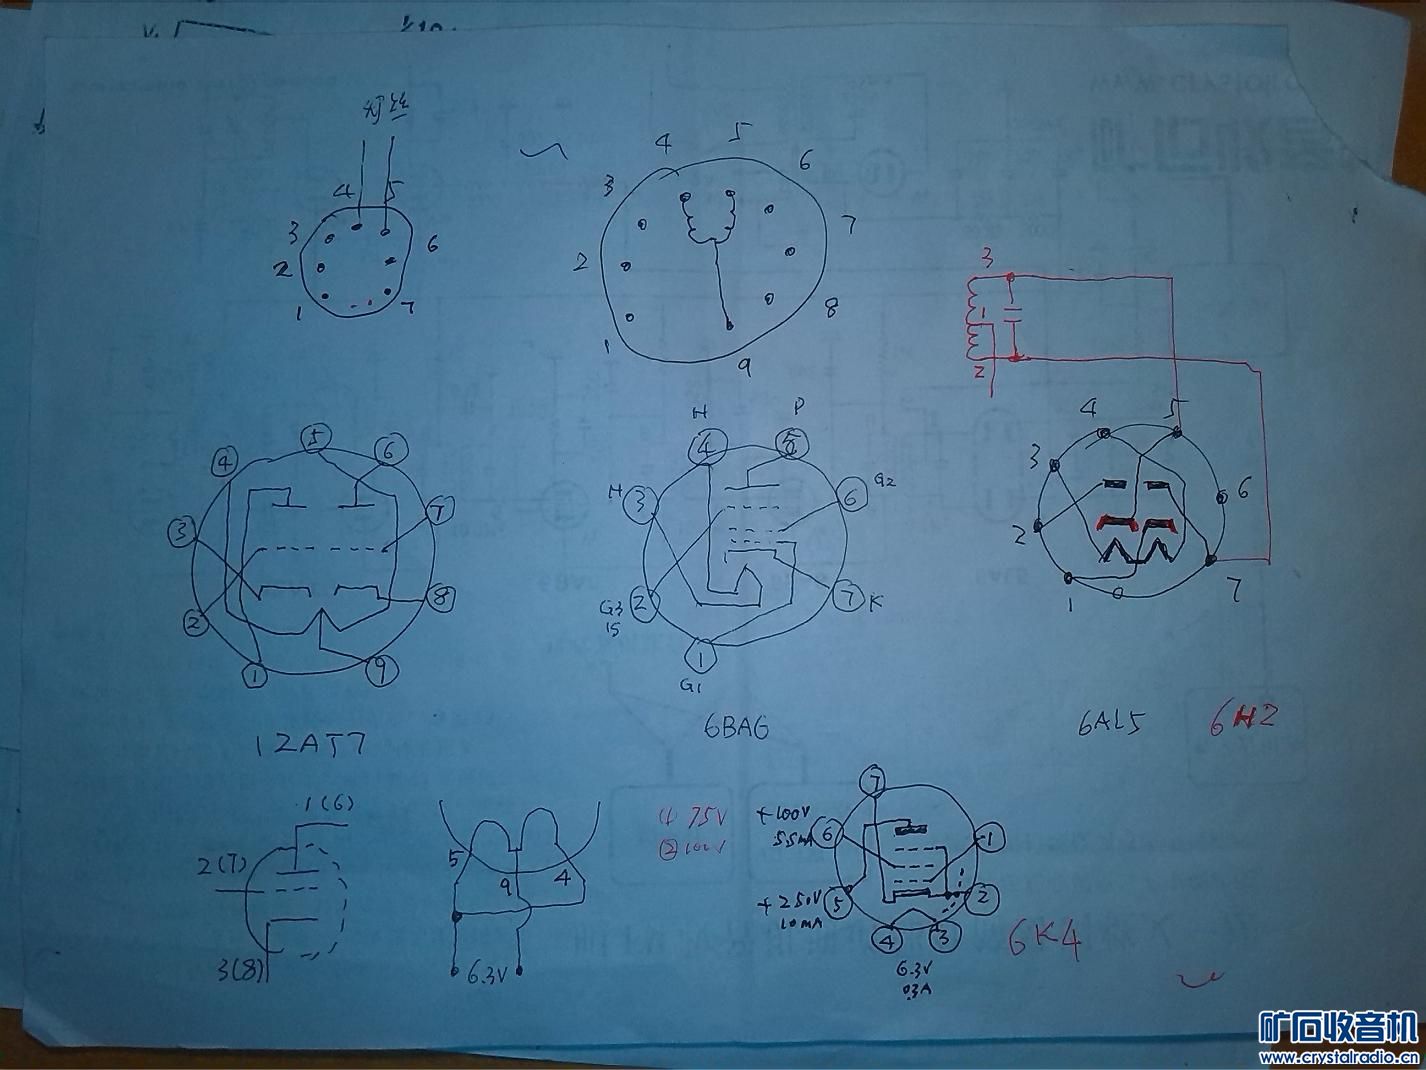 灯丝
4 5
3 6
2
1 7
4 5 6
3 7
2
8
1 9
3
1
2
4 5
3 6
2
1 7
④ ⑤ ⑥
③ ⑦
② ⑧
① ⑨
12AT7
H P
④ ⑤
H ③ ⑥ G2
G3 ② ⑦ K
15
①
G1
6BA6
6AL5 6H2
1(6)
2(7)
3(8)
5 9 4
6.3V
① 75V
② 100V
⑦
+100V ⑥ ①
5.5mA
+250V ⑤ ②
10mA ④ ③
6.3V
0.3A
6K4
矿石收音机
www.crystalradio.cn